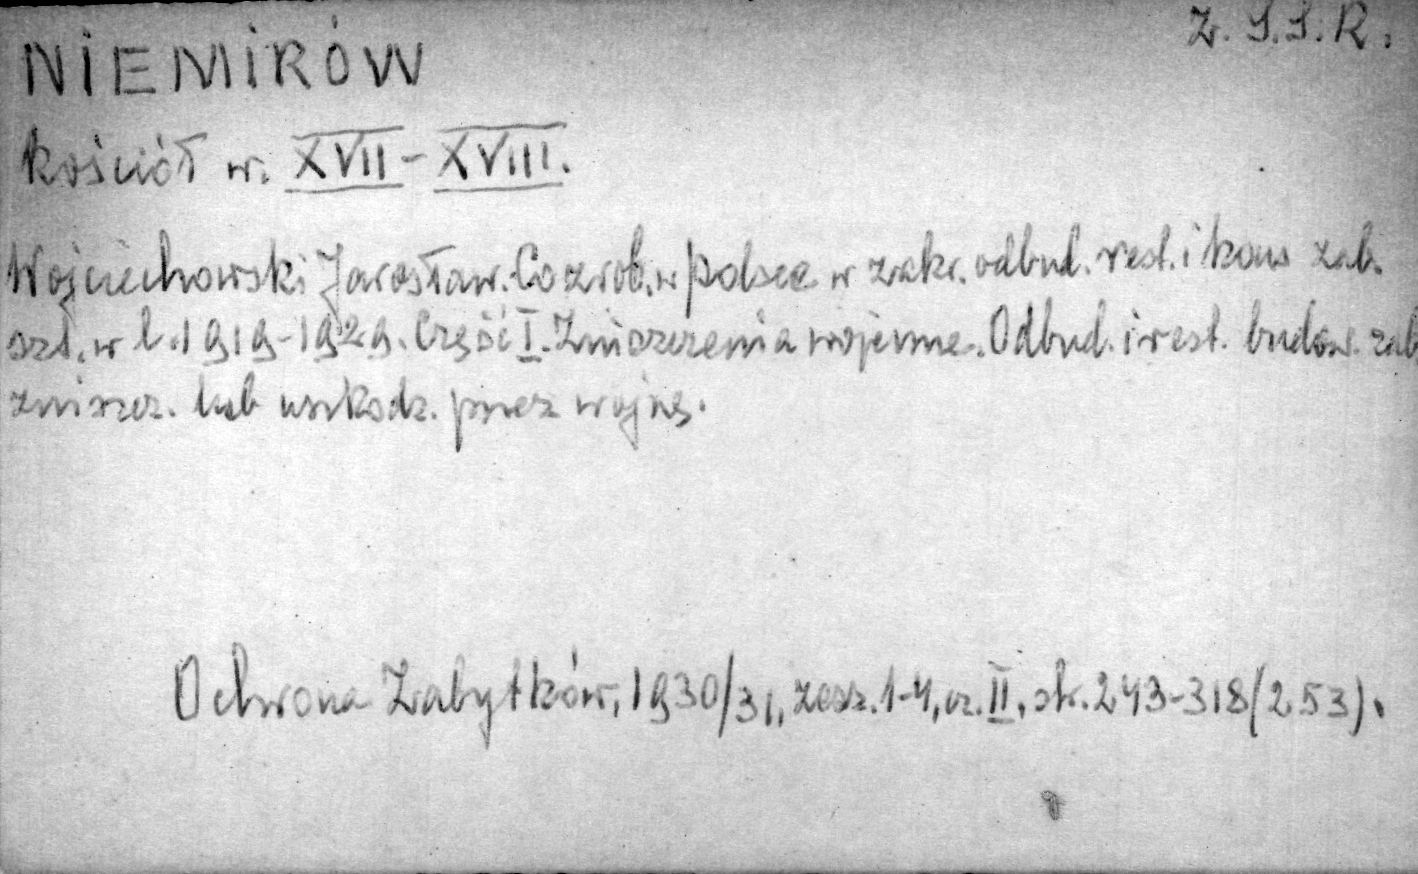 Z.S.S.R.
NIEMIRÓW
Kościół w. XVII-XVIII.
Wojciechowski Jarosław. Co zrob. w Polsce w zakr. odbud. rest. i kons zab.
szt. w l. 1919-1929. Część I. Zniszczenia wojenne. Odbud. i rest. budow. zab
zniszcz. lub uszkodz. przez wojnę.
Ochrona Zabytków, 1930/31, zesz. 1-4, cz. II, str. 243-318 (253).